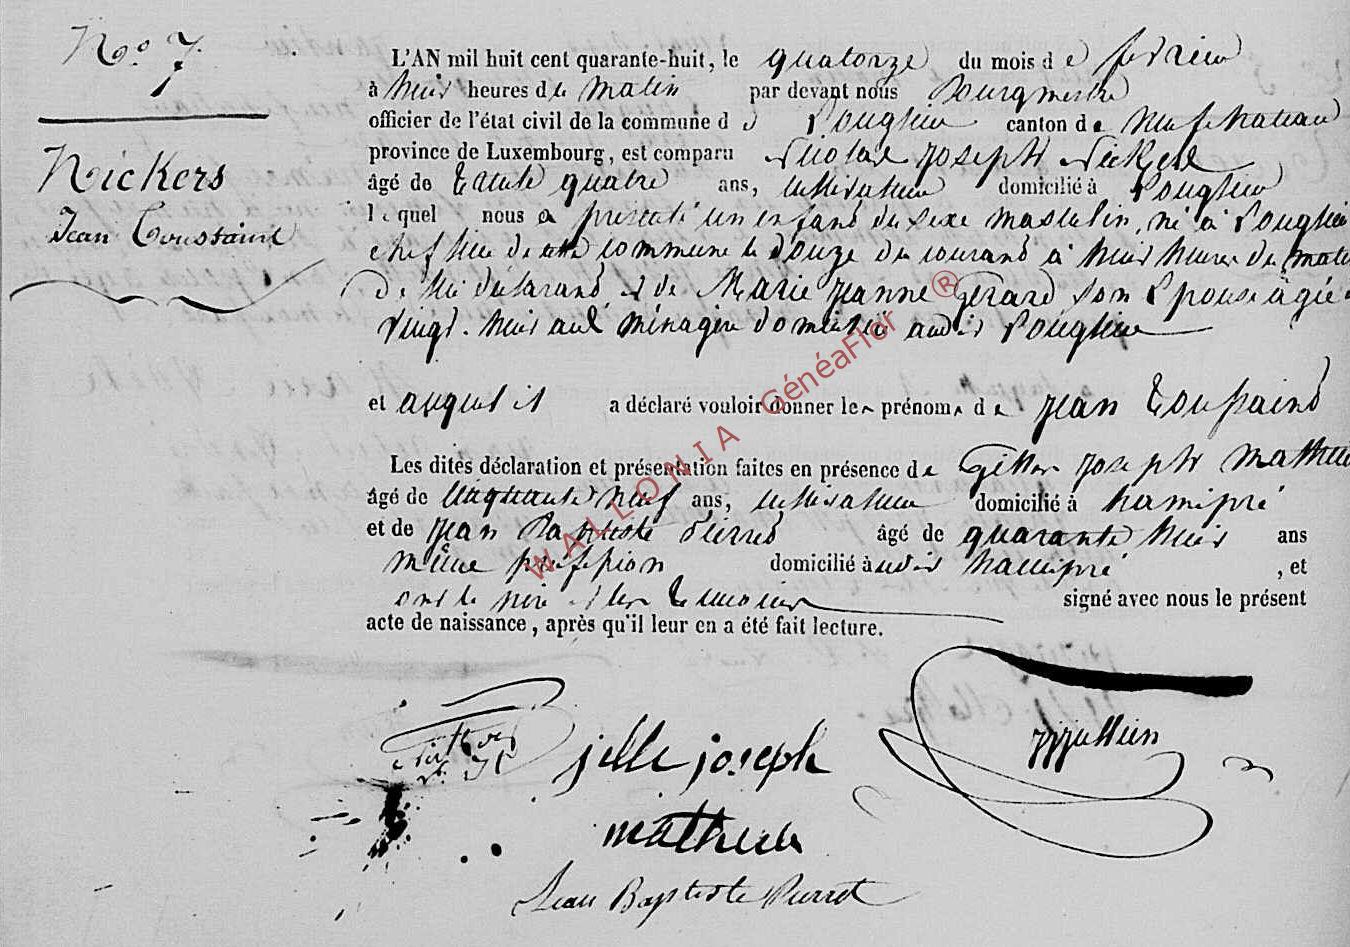 No. 7
Nickers
Jean Toussaint
L'AN mil huit cent quarante-huit, le quatorze du mois de fevrier
à huit heures du matin par devant nous Bourgmestre
officier de l'état civil de la commune de Longlier canton de Neufchateau
province de Luxembourg, est comparu Nicolas Joseph Nickers
âgé de trente quatre ans, cultivateur domicilié à Longlier
lequel nous a présenté un enfant du sexe masculin, né à Longlier
chef lieu de cette commune le douze du courant à huit heures du matin
de lui déclarant, et de Marie Jeanne Gerard son Epouse âgée
vingt-huit ans ménagère domiciliée audit Longlier
et auquel il a déclaré vouloir donner les prénoms de Jean Toussaint
Les dites déclaration et présentation faites en présence de Joseph Mathieu
âgé de cinquante neuf ans, cultivateur domicilié à hamipré
et de Jean Baptiste Pierret âgé de quarante huit ans
même profession domicilié audit hamipré , et
ont le père et les témoins signé avec nous le présent
acte de naissance, après qu'il leur en a été fait lecture.
jille joseph
mathieu
Jean Baptiste Pierret
WALLONIA GénéaFlor ®